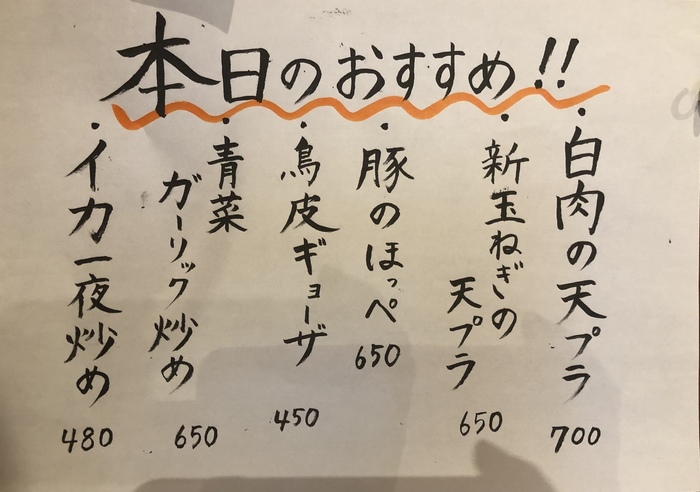 本日のおすすめ!!
・白肉の天プラ
700
・新玉ねぎの
天プラ
650
・豚のほっぺ
650
・鳥皮ギョーザ
450
・青菜
ガーリック炒め
650
・イカ一夜炒め
480